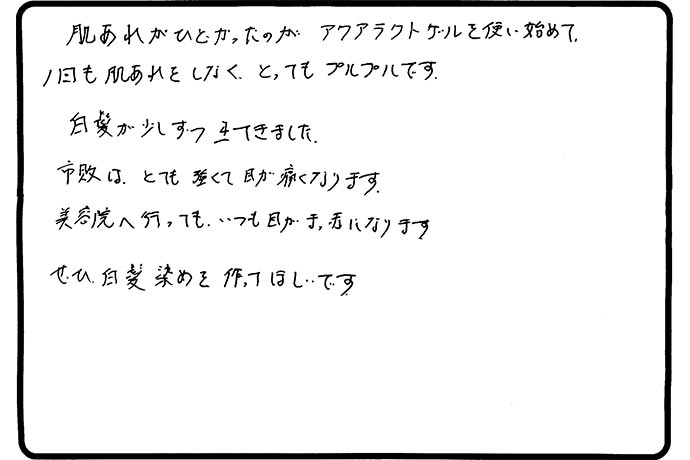 肌あれがひどかったのが アクアラクトゲルを使い始めて、
1回も肌あれをしなく、とってもプルプルです。
白髪が少しずつ出てきました。
市販は、とても強くて目が痛くなります。
美容院へ行っても、いつも目がまっ赤になります
ぜひ、白髪染めを作ってほしいです